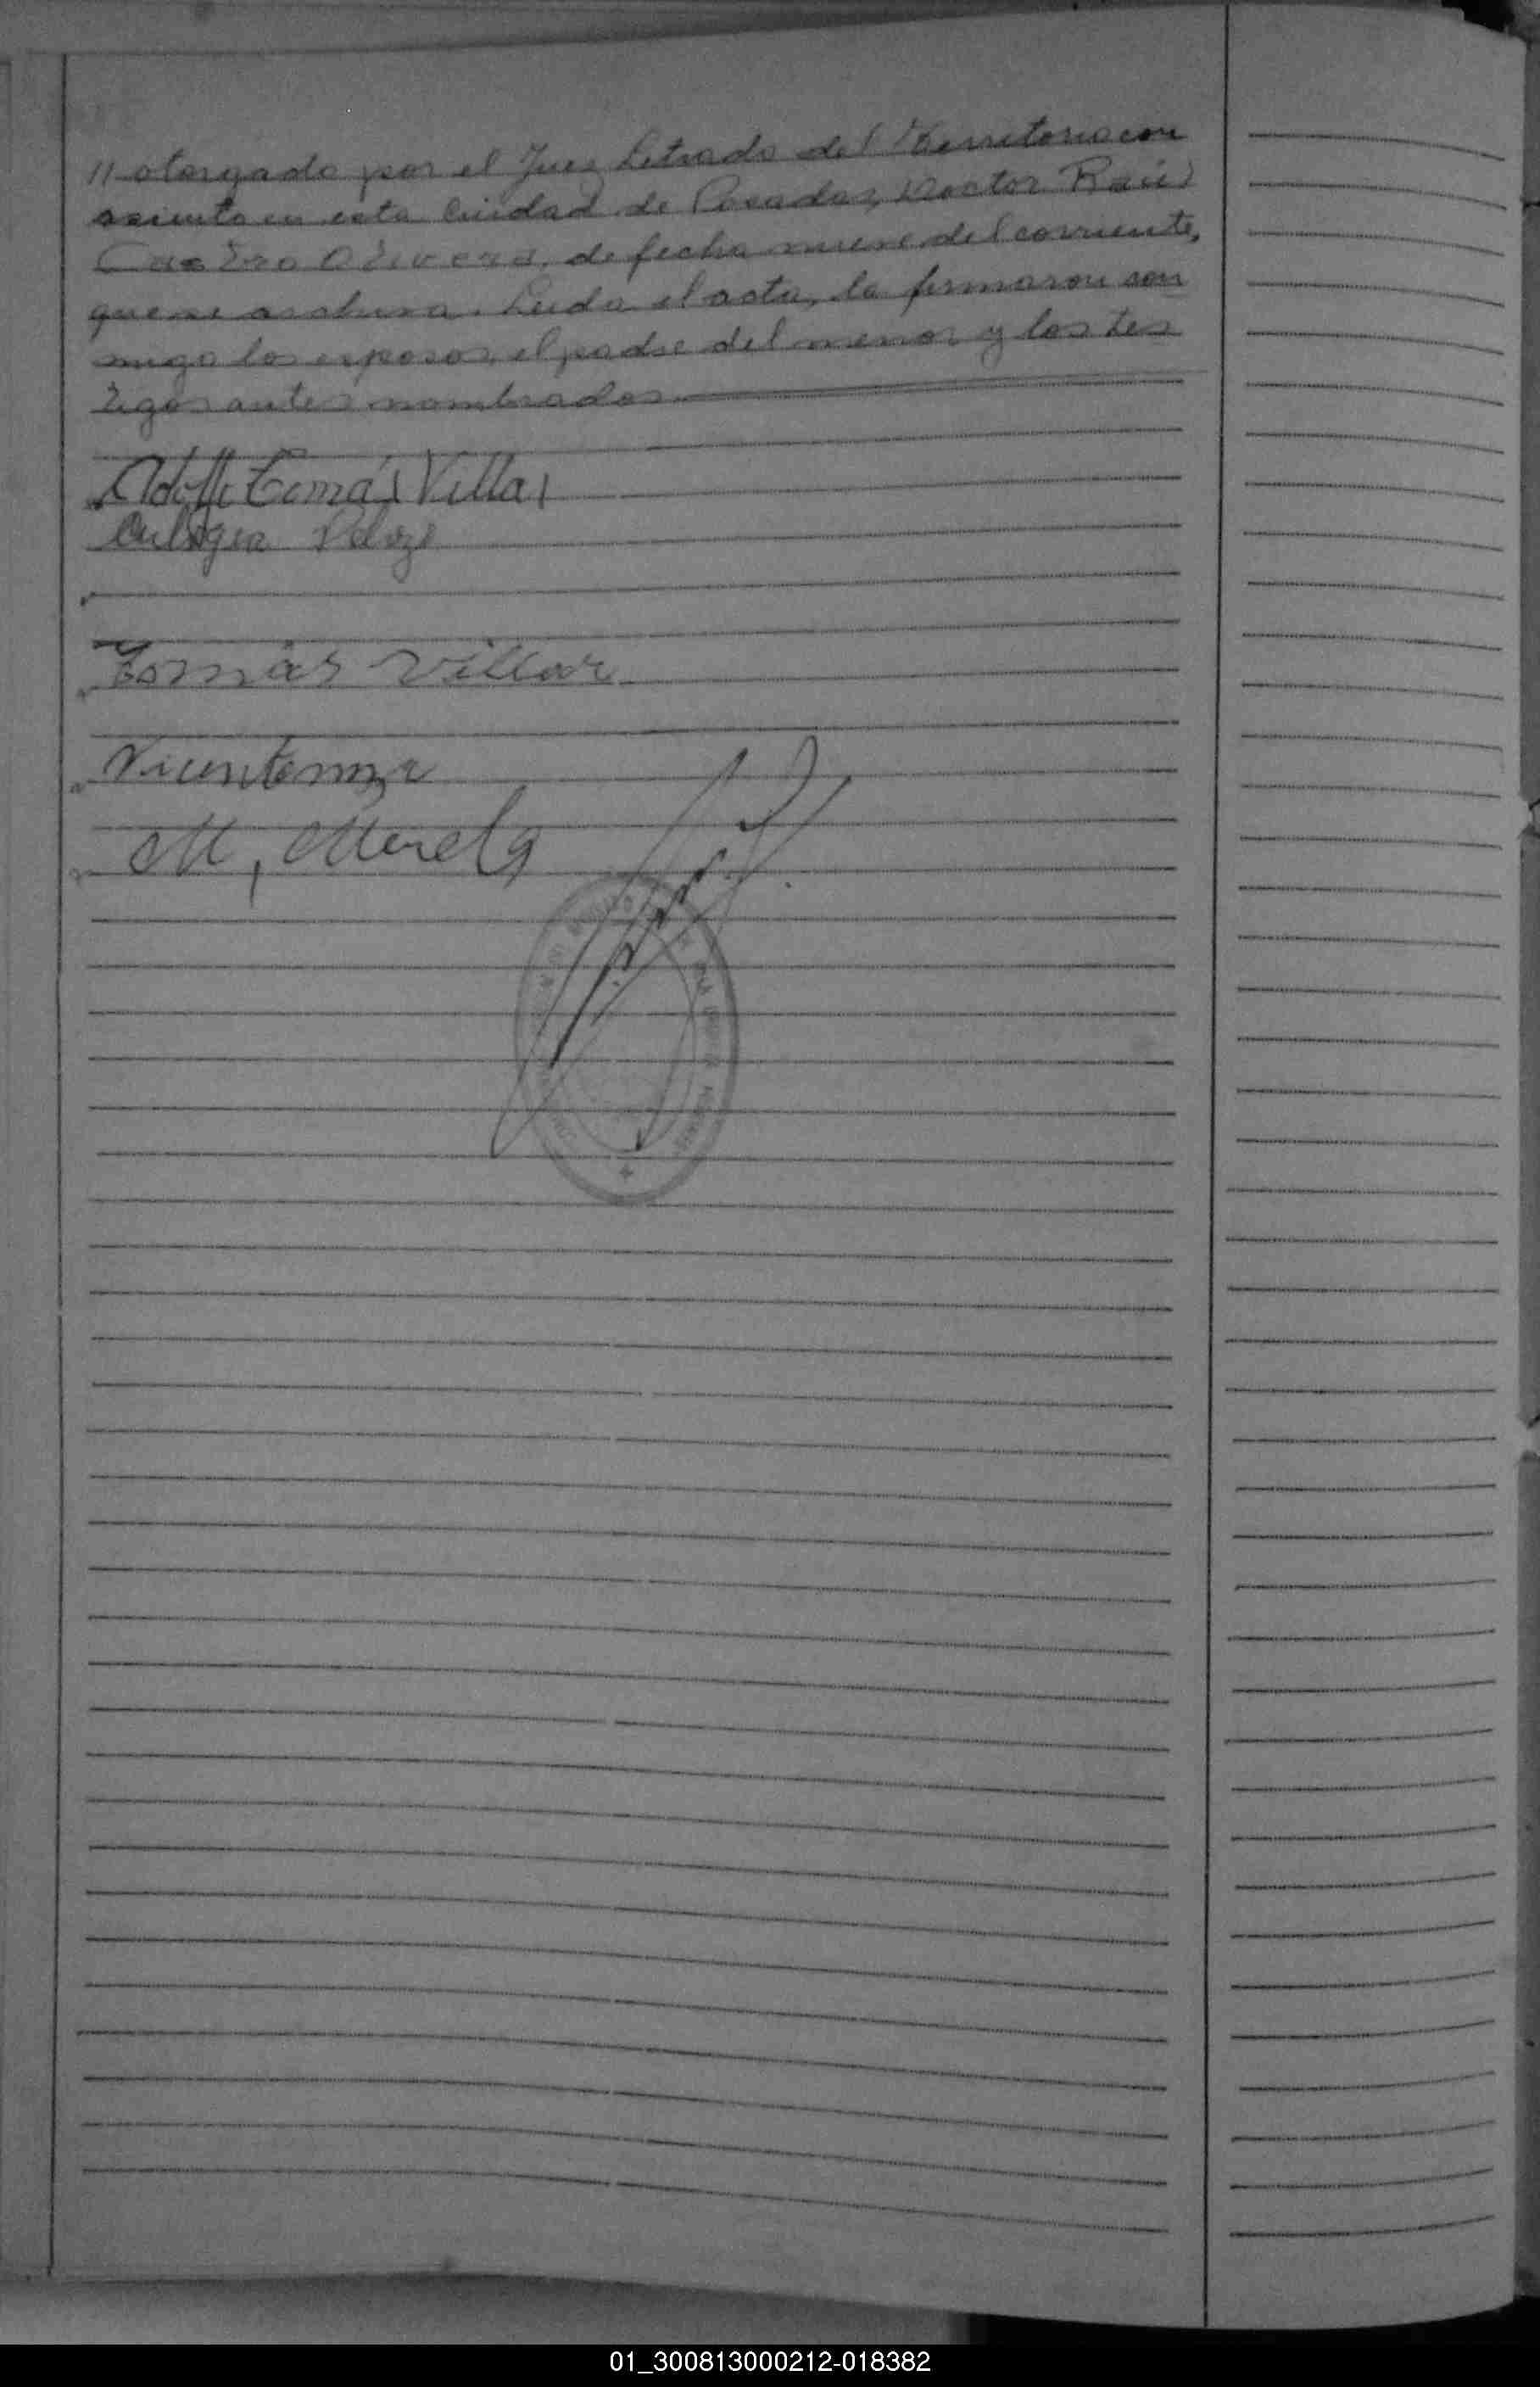 // otorgado por el Juez Letrado del Territorio con
asiento en esta Ciudad de Posadas, Doctor Raúl
Castro Olivera, de fecha nueve del corriente,
que se archiva. Leida el acta, la firmaron con
migo los esposos, el padre del menor y los tes
tigos antes nombrados.
Adolfo Tomás Villar
Eulogia
Tomás Villar
M. Merelo
01_300813000212-018382